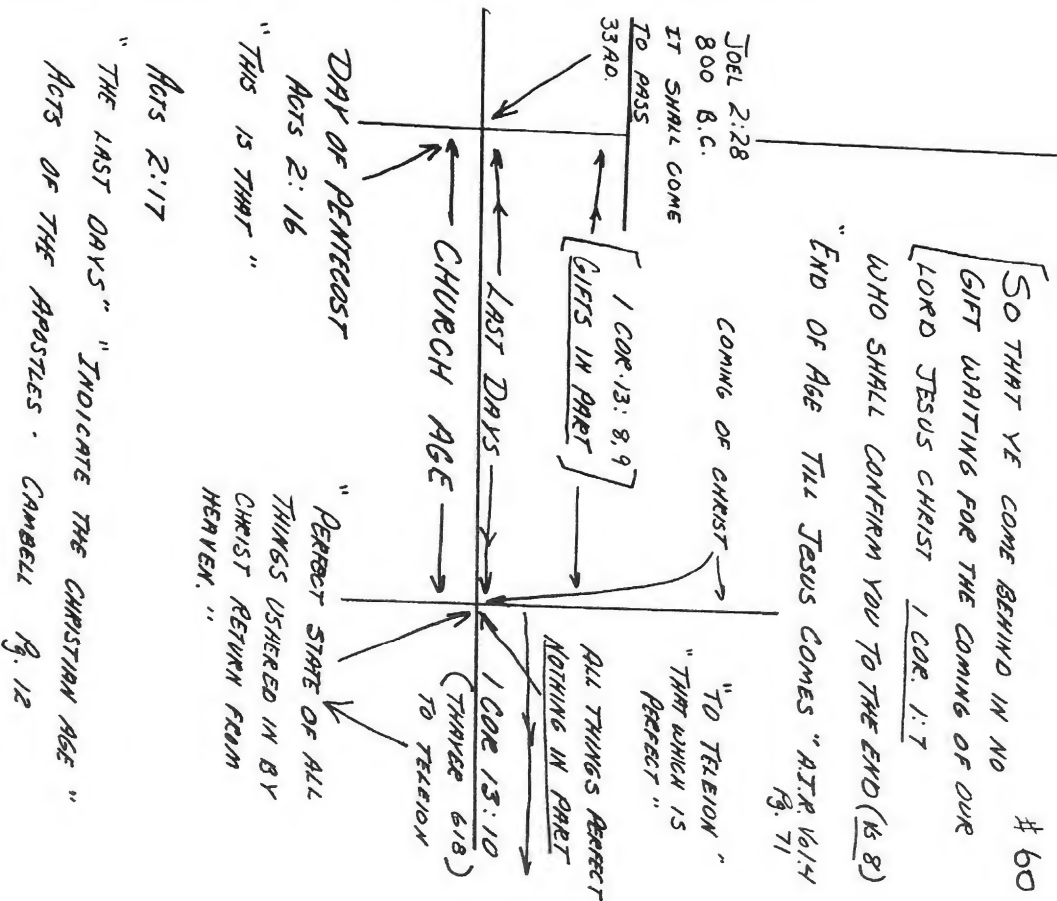 # 60
SO THAT YE COME BEHIND IN NO
GIFT WAITING FOR THE COMING OF OUR
LORD JESUS CHRIST 1 COR. 1:7
WHO SHALL CONFIRM YOU TO THE END (VS 8)
"END OF AGE TILL JESUS COMES" A.T.R. Vol. 4
Pg. 71
JOEL 2:28
800 B.C.
IT SHALL COME
TO PASS
33 AD.
COMING OF CHRIST
"TO TELEION"
"THAT WHICH IS
PERFECT"
1 COR. 13:8,9
GIFTS IN PART
ALL THINGS PERFECT
NOTHING IN PART
LAST DAYS
1 COR 13:10
CHURCH AGE
(THAYER 618)
TO TELEION
DAY OF PENTECOST
ACTS 2:16
"THIS IS THAT"
"PERFECT STATE OF ALL
THINGS USHERED IN BY
CHRIST RETURN FROM
HEAVEN."
ACTS 2:17
"THE LAST DAYS" "INDICATE THE CHRISTIAN AGE"
ACTS OF THE APOSTLES. CAMBELL Pg. 12